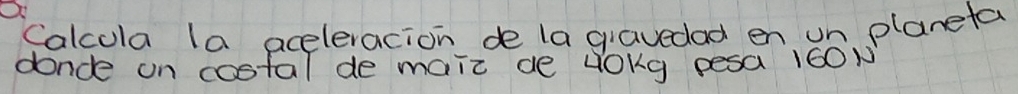 Calcula la aceleración de la gravedad en un planeta
donde un costal de maiz de 40kg pesa 160N